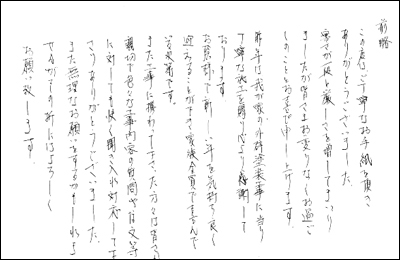 前略
この度はご丁寧なお手紙を頂き
ありがとうございました。
寒さが一段と厳しさを増してまいり
ましたが皆さまお変りなくお過ご
しのこととお喜び申し上げます。
昨年は我が家の外壁塗装工事に当り
丁寧な施工を賜り心より感謝して
おります。
お蔭様で新しい年を気持ち良く
迎えることができ家族全員で喜んで
いる次第です。
また工事に携わって下さった方々は皆さん
親切で色々な工事内容の質問や注文等
に対しても快く聞き入れ対応して下
さりありがとうございました。
また無理なお願いをするかもしれま
せんがその折にはよろしく
お願い致します。